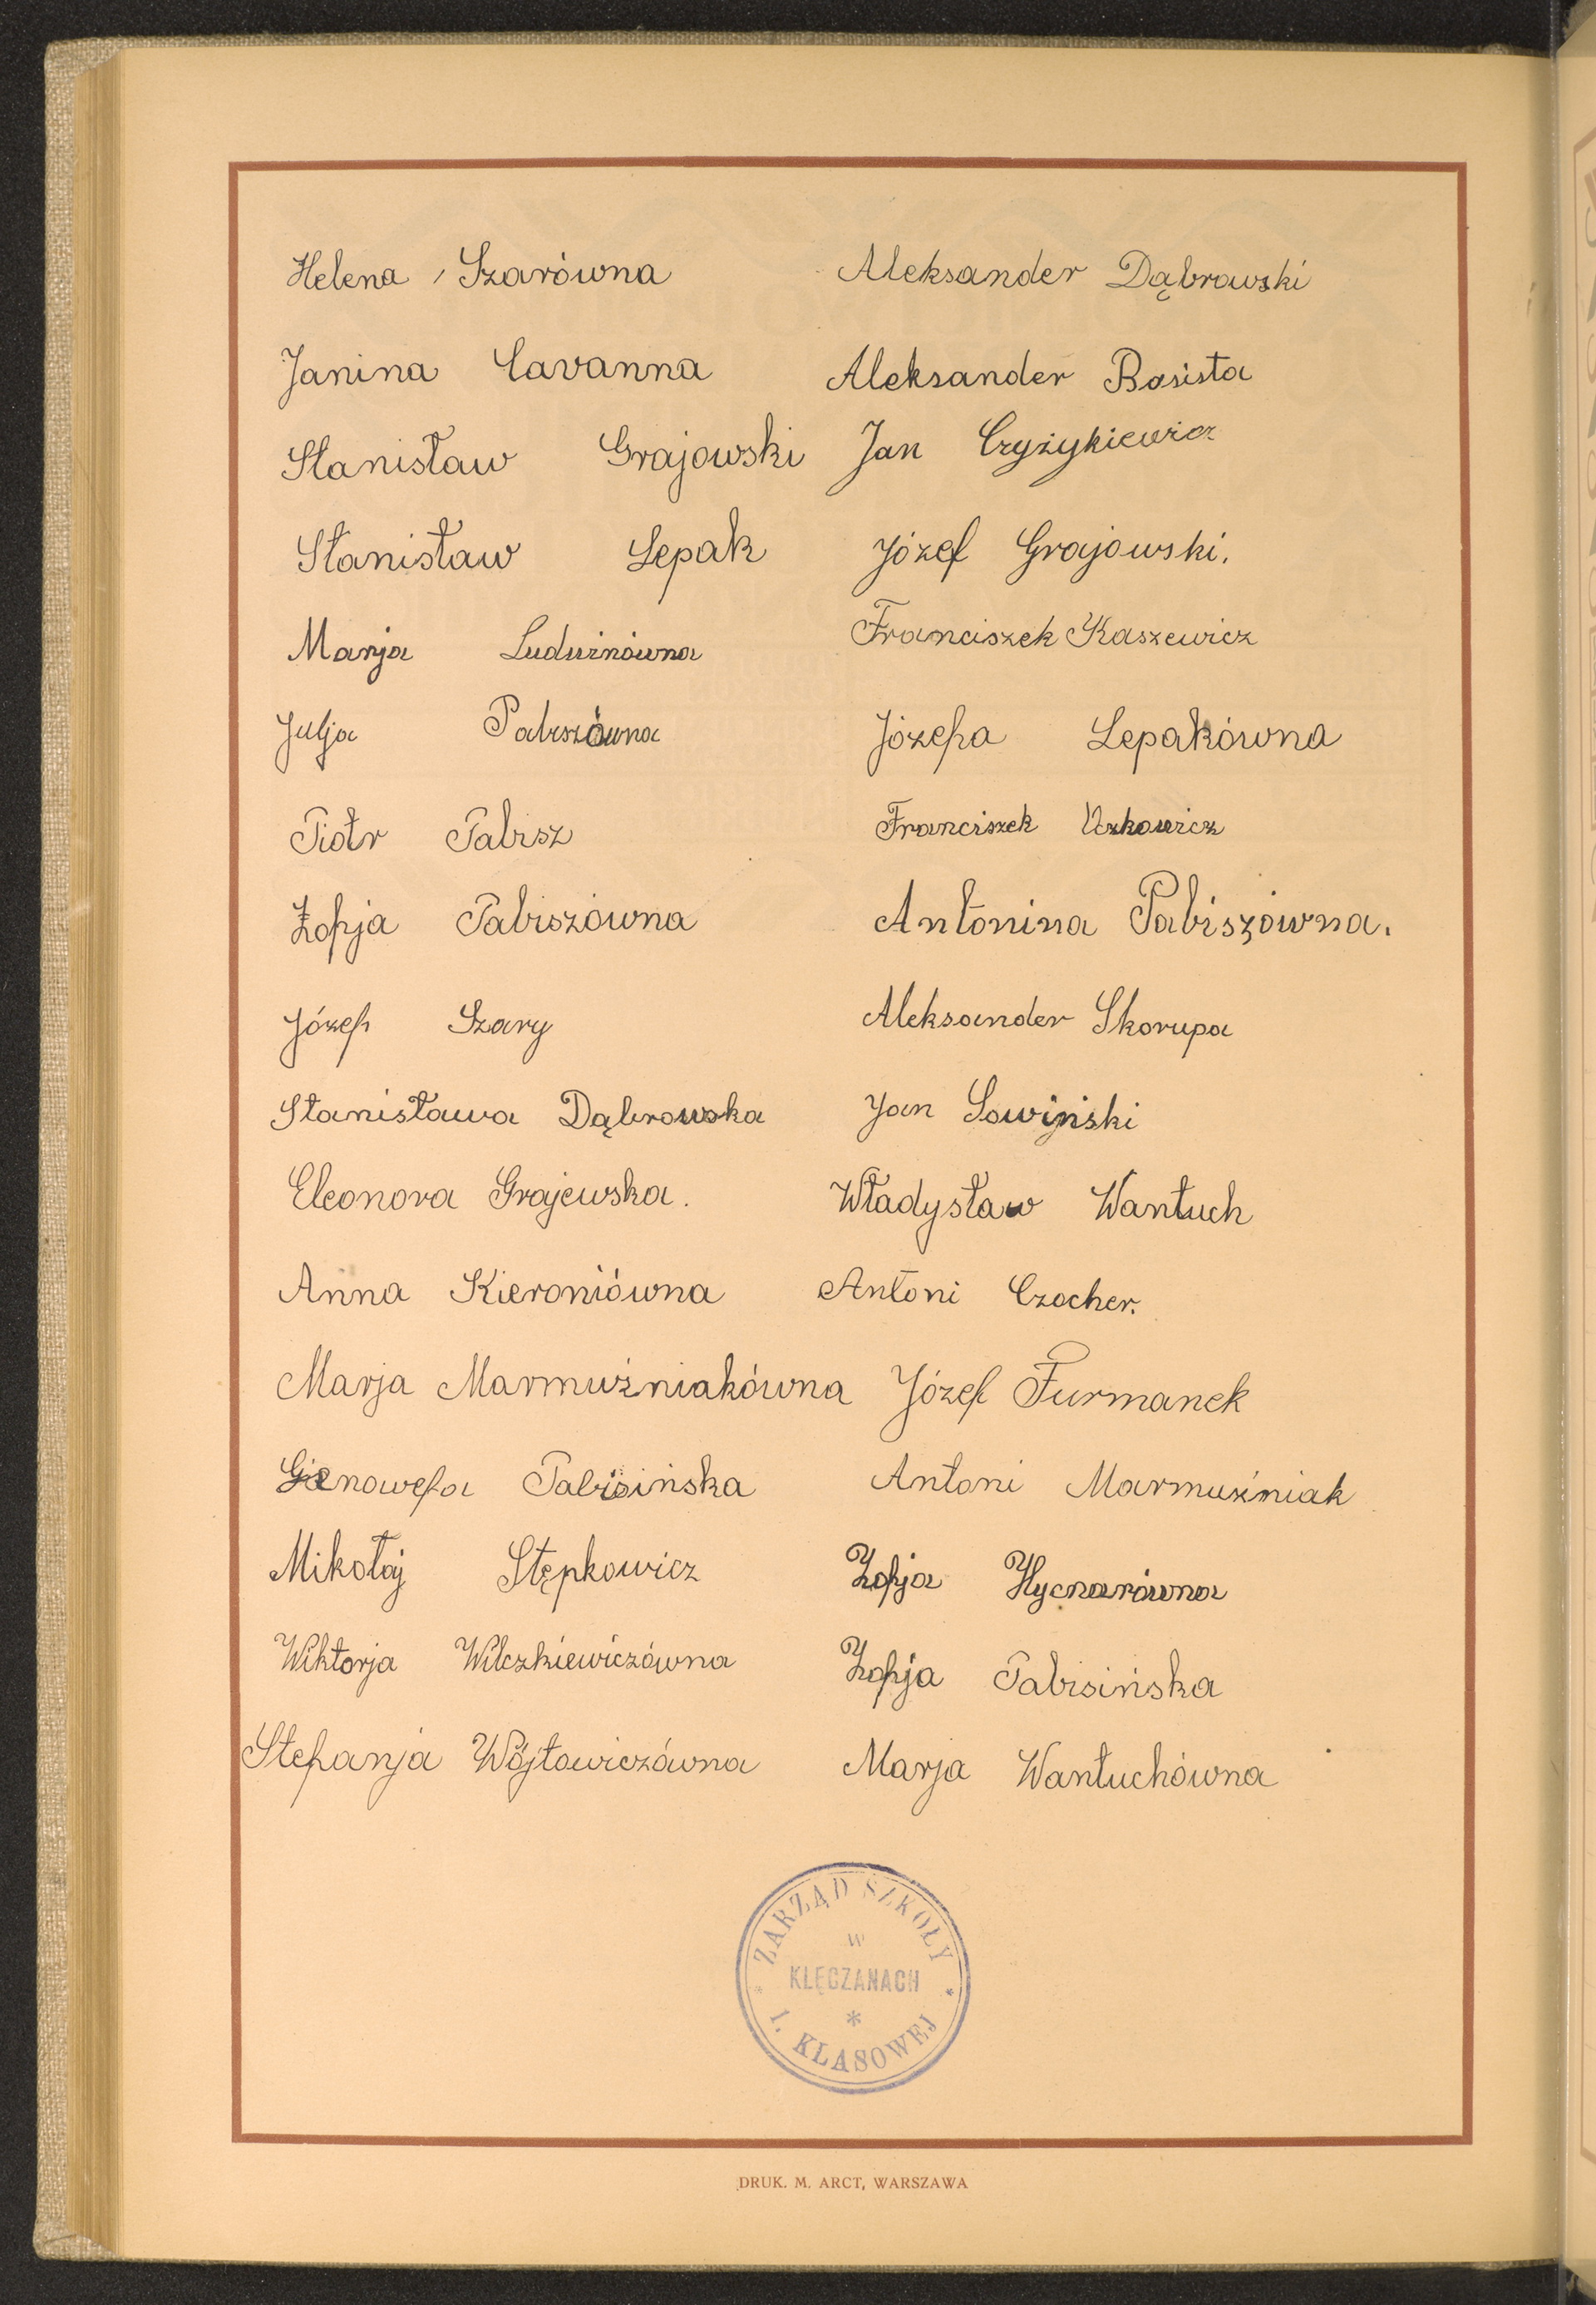 Helena Szarówna
Janina Cavanna
Stanisław Grajowski
Stanisław Lepak
Marja Ludwinówna
Julja Pabiszówna
Piotr Pabisz
Zofja Pabiszówna
Józef Szary
Stanisława Dąbrowska
Eleonora Grajewska.
Anna Kieroniówna
Marja Marmuźniakówna
Genowefa Pabisińska
Mikołaj Stępkowicz
Wiktorja Wilczkiewiczówna
Stefanja Wójtowiczówna
Aleksander Dąbrawski
Aleksander Basista
Jan Czyżykiewicz
Józef Grajowski.
Franciszek Kaszewicz
Józefa Lepakówna
Franciszek
Antonina Pabiszówna.
Aleksander Skorupa
Jan Sowiński
Władysław Wantuch
Antoni Czocher.
Józef Furmanek
Antoni Marmuźniak
Zofja Hycnarówna
Zofja Pabisińska
Marja Wantuchówna
ZARZĄD SZKOŁY
w
KLĘCZANACH
1. KLASOWEJ
DRUK. M. ARCT, WARSZAWA